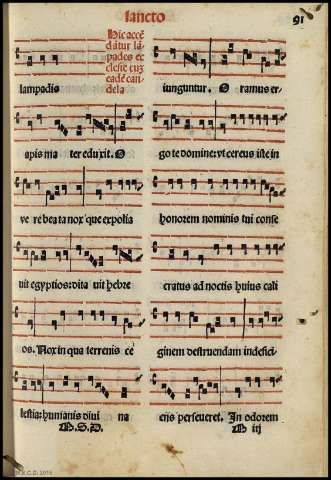 sancto
91
Hic accẽ
datur lã
pades ec
clesie cuz
eadẽ can
dela
lampadis
apis ma ter eduxit. O
ve re beata nox que expolia
uit egyptios: dita uit hebre
os. Nox in qua terrenis ce
lestia: humanis divi na
M.S.D.
iunguntur. O ramus er
go te domine: vt cereus iste in
honorem nominis tui conse
cratus ad noctis huius cali
ginem destruendam indefici
ens perseueret. In odorem
M iij